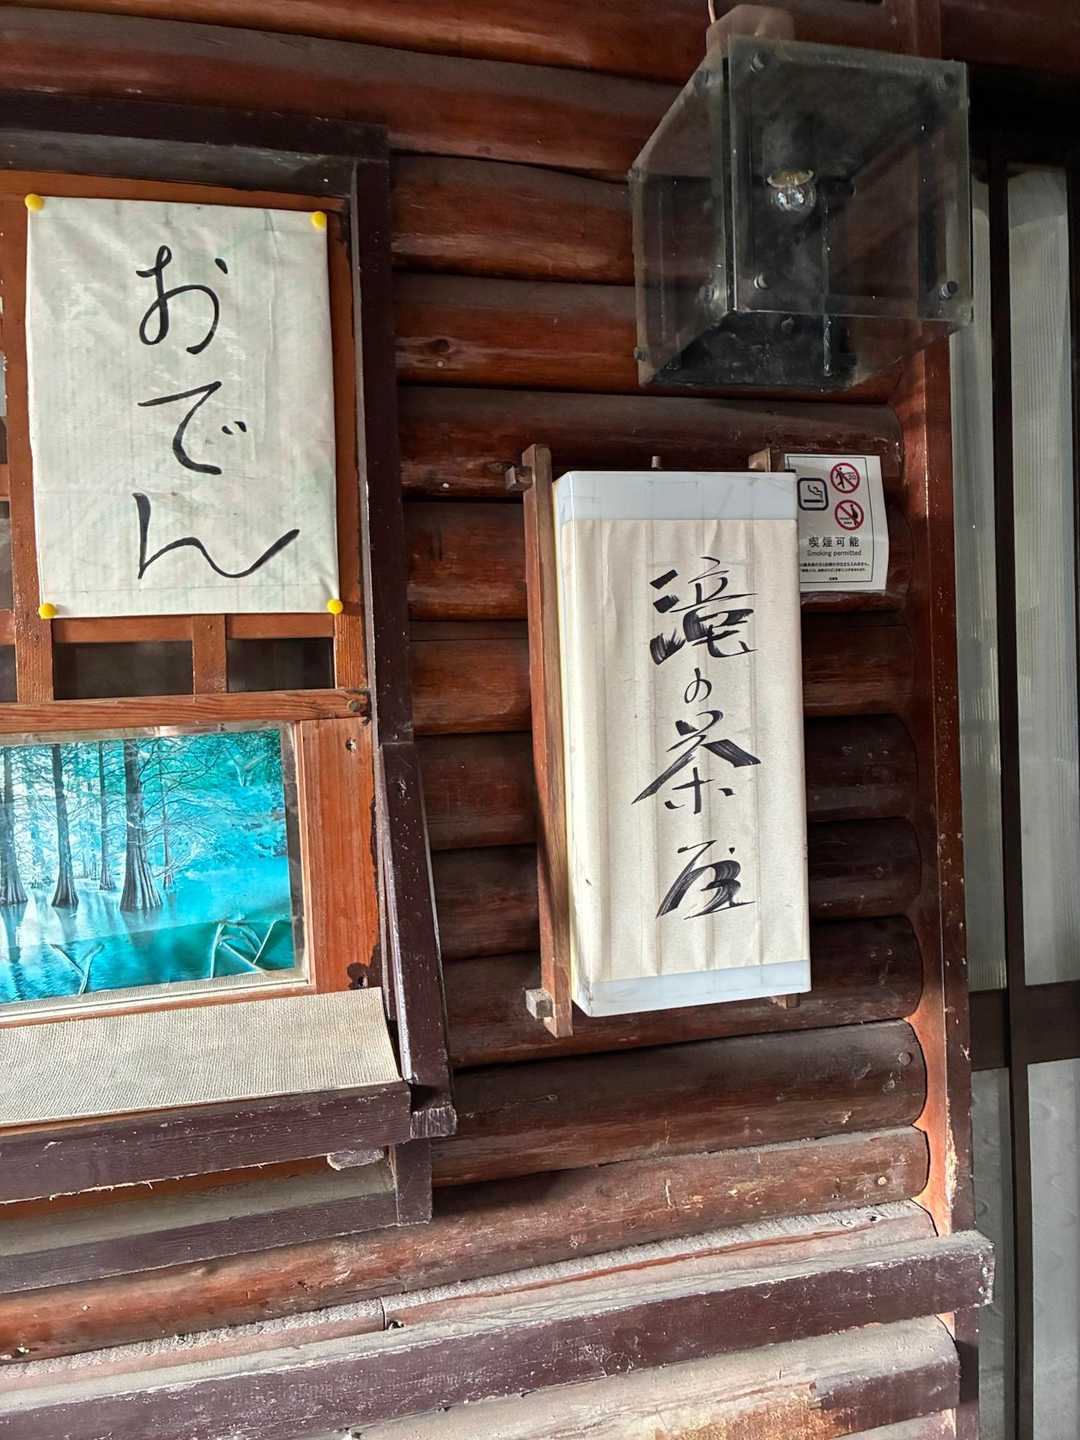 おでん
滝の茶屋
喫煙可能
Smoking permitted